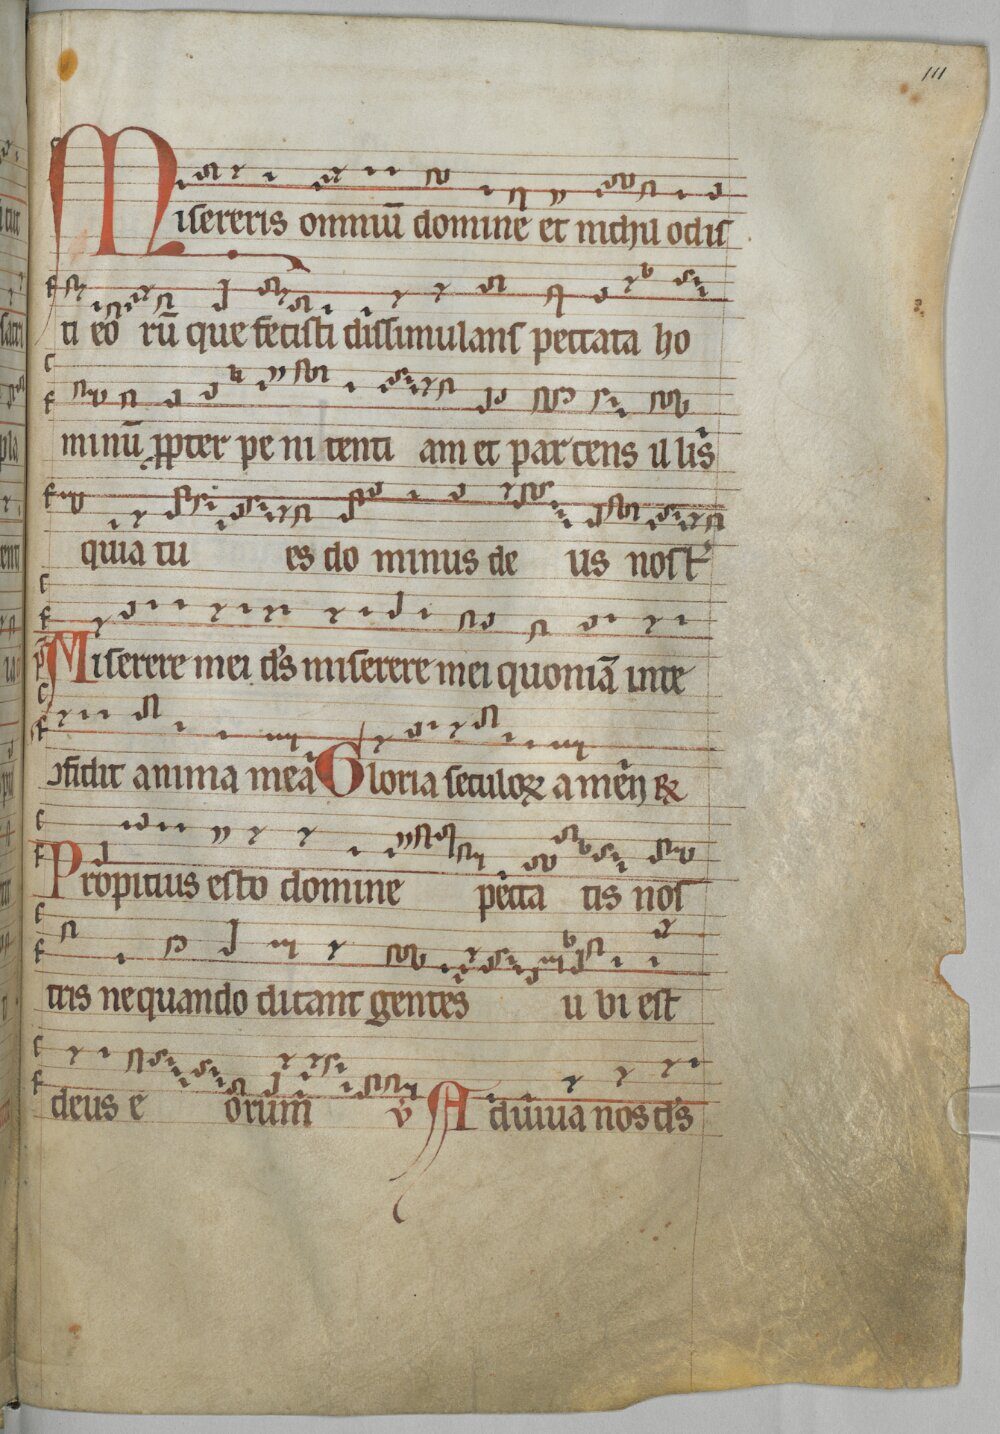 111
Misereris omniū domine et nichil odis
ti eo rū que fecisti dissimulans peccata ho
minū ꝓpter pe ni tenti am et parcens il lis
quia tu es do minus de us nost᷑
p̄ Miserere mei d̄s miserere mei quoniā in te
ↄfidit anima mea Gloria seculoꝝ amen R
Propitius esto domine pecca tis nos
tris nequando dicant gentes u bi est
deus e orum v̄ Adiuua nos d̄s